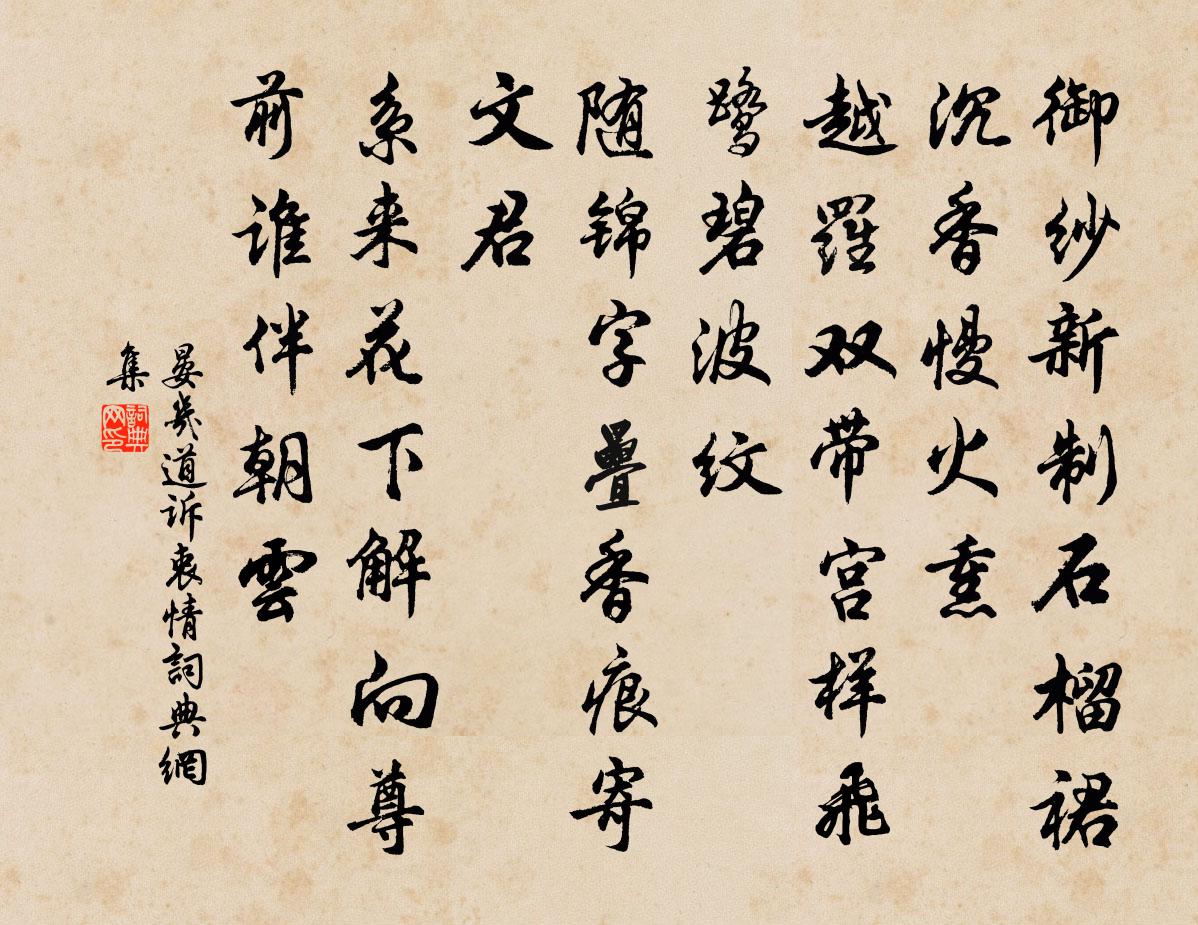 御纱新制石榴裙
沉香慢火熏
越羅双带宫样飛
鹭碧波纹
随锦字疊香痕寄
文君
系来花下解向尊
前谁伴朝雲
晏幾道诉衷情詞典網
集
詞典网印